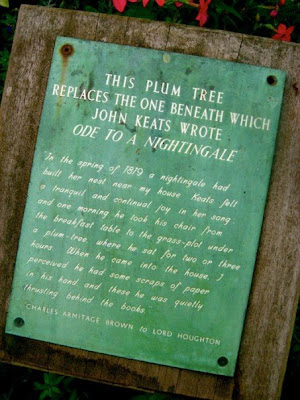 THIS PLUM TREE
REPLACES THE ONE BENEATH WHICH
JOHN KEATS WROTE
ODE TO A NIGHTINGALE
"In the spring of 1819 a nightingale had
built her nest near my house. Keats felt
a tranquil and continual joy in her song
and one morning he took his chair from
the breakfast table to the grass-plot under
a plum-tree, where he sat for two or three
hours. When he came into the house, I
perceived he had some scraps of paper
in his hand and these he was quietly
thrusting behind the books."
CHARLES ARMITAGE BROWN to LORD HOUGHTON